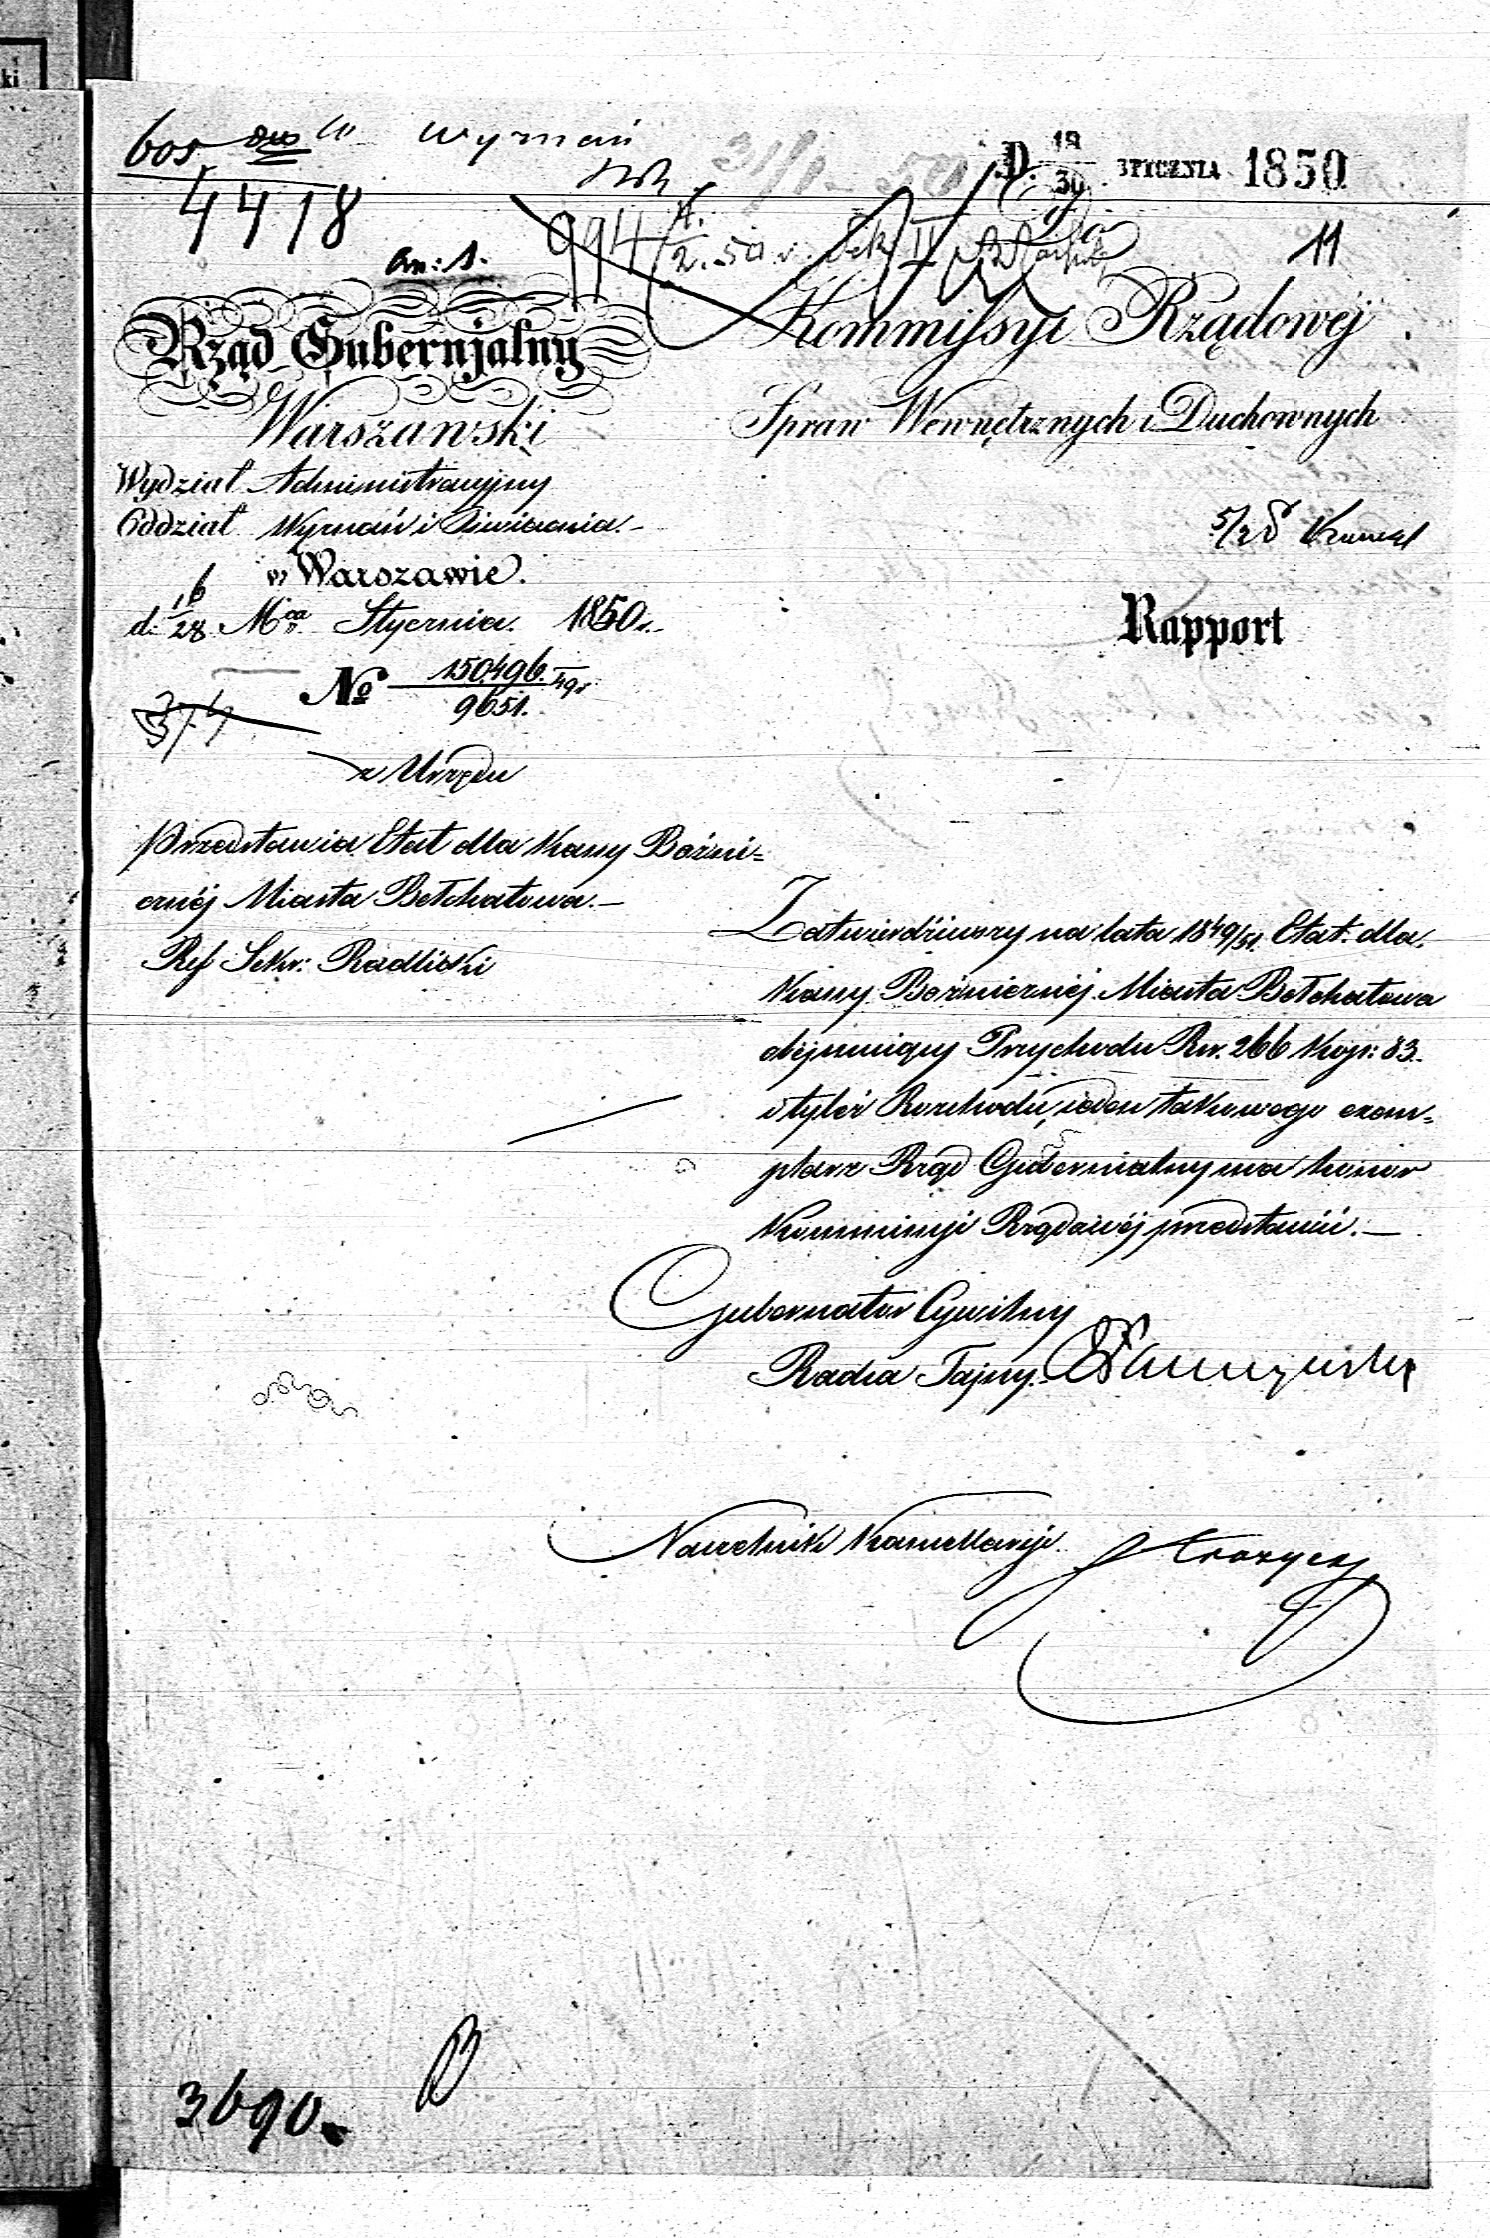 Wyznań
D. 18/30 STYCZNIA 1850
4418
11
an: 1.
Rząd Gubernjalny
Warszawski
Wydział Administracyjny
Oddział Wyznań i
w Warszawie.
d. 16/28 Mca Stycznia 1850 r.
No 150496/9651. 49r
z Urzędu
Przedstawia Etat dla Kassy Bóżni=
cznéj Miasta Bełchatowa.—
Ref Sekr: Radlicki
Kommissyi Rządowéj
Spraw Wewnętrznych i Duchownych
Rapport
Zatwierdziwszy na lata 1849/51 Etat dla
Kassy Bożnicznéj Miasta Bełchatowa
obejmuiący Przychodu Rsr. 266 Kop: 83.
i tyleż Rozchodu, ieden takowego exem=
plarz Rząd Gubernialny ma honor
Kommissyi Rządowéj przedstawić.—
Gubernator Cywilny
Radca Tajny
Naczelnik Kancellaryi
3690.